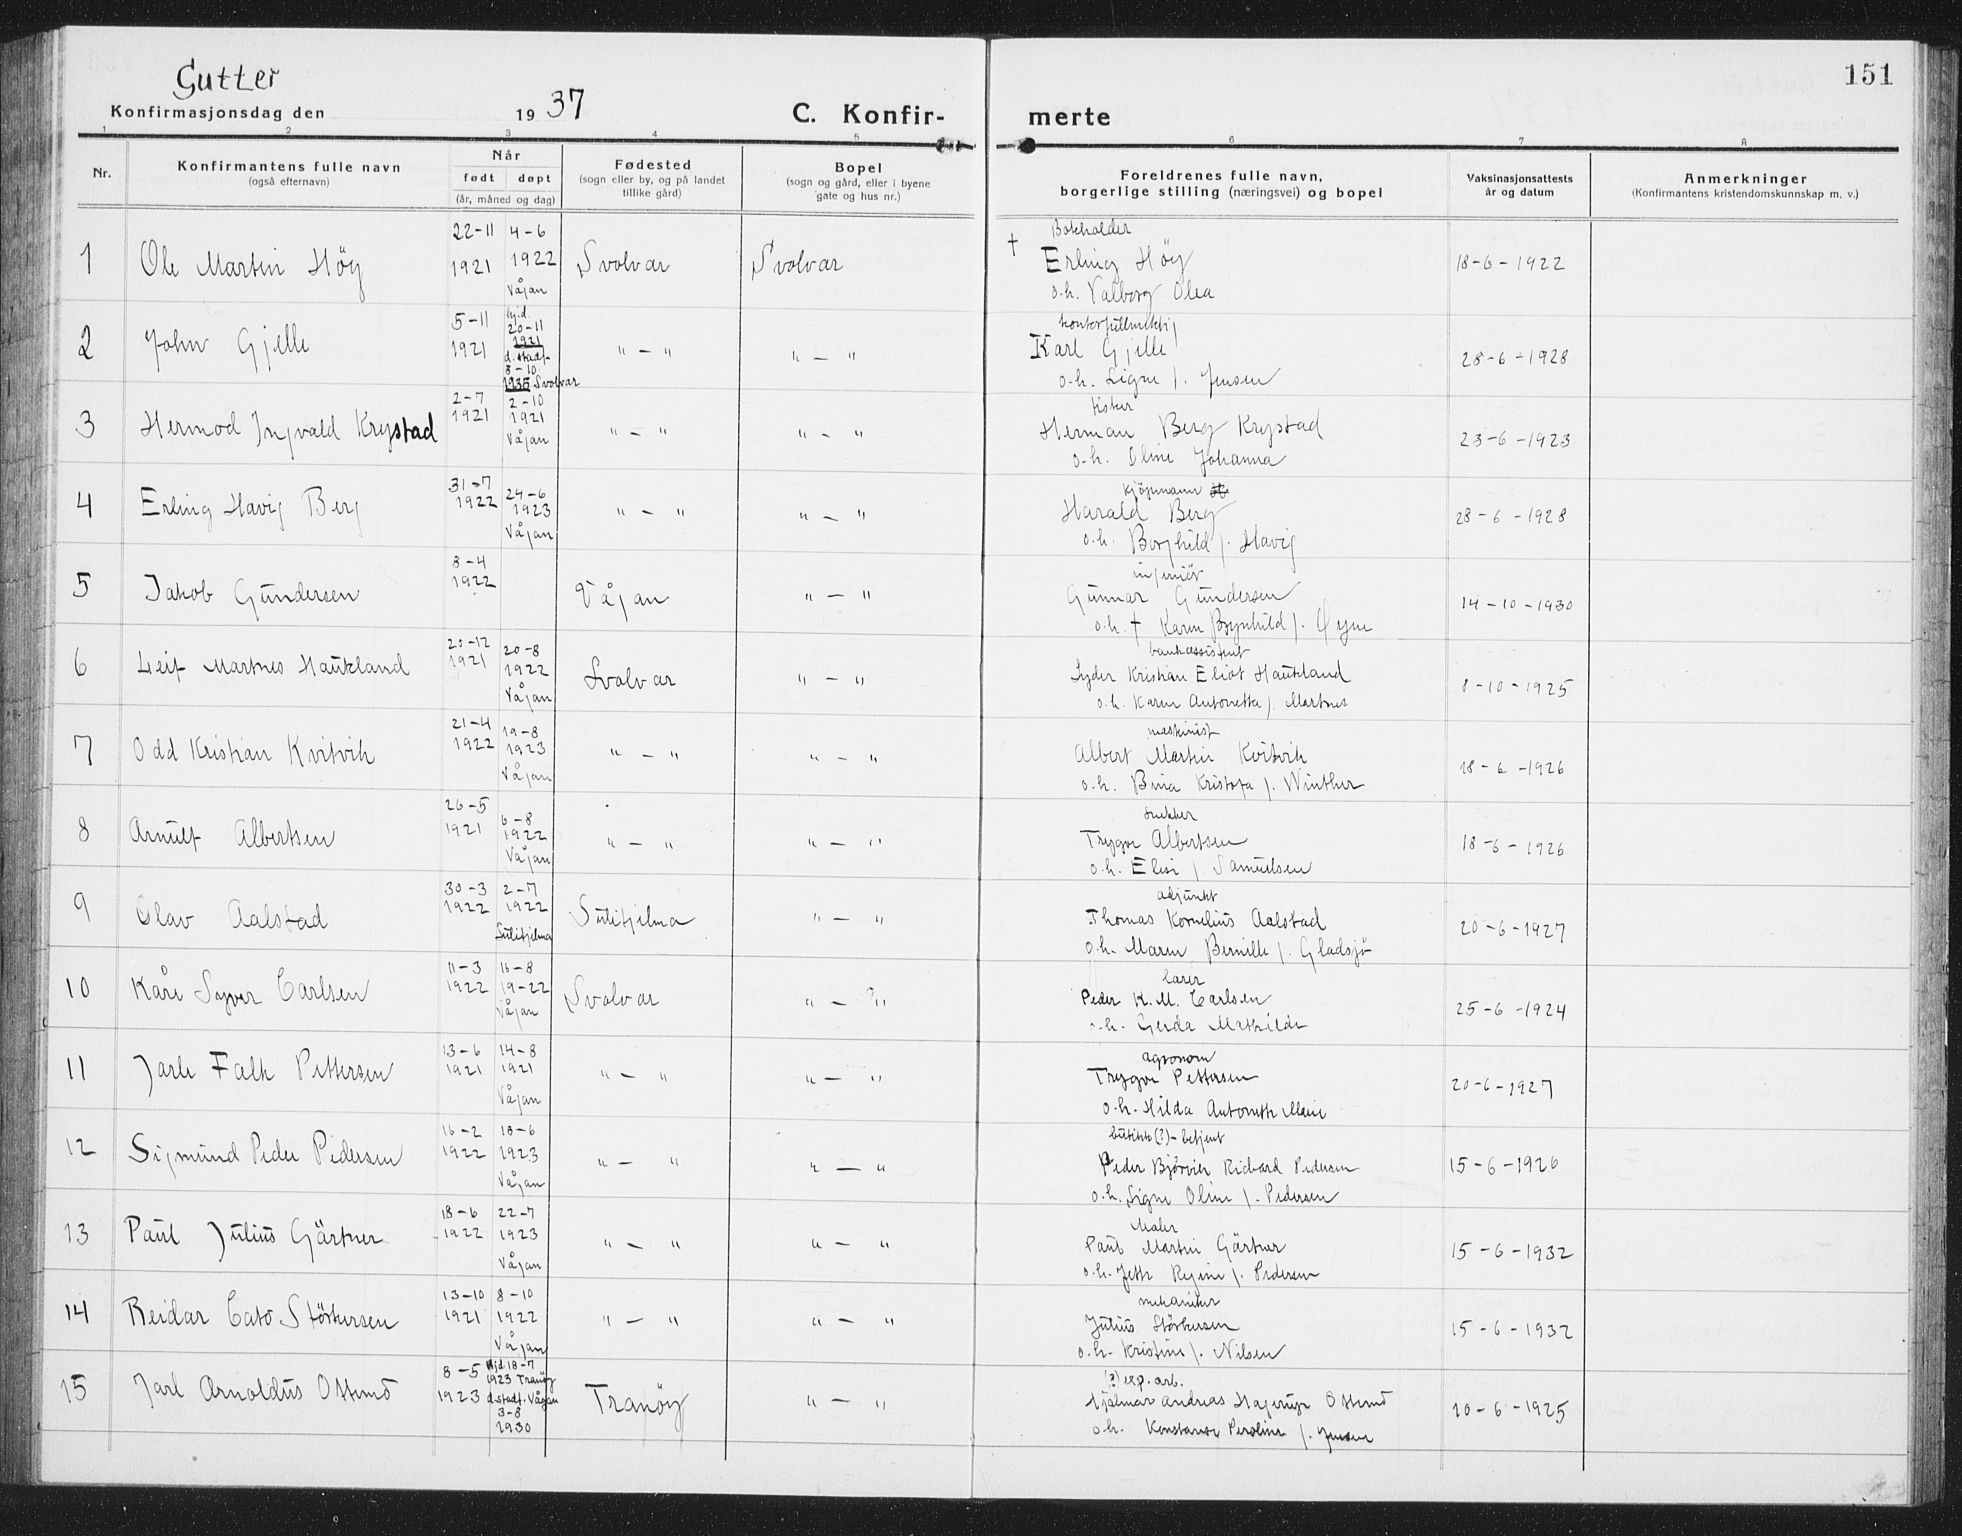 151
Gutter
Konfirmasjonsdag den 1937 C. Konfir- merte
1 2 3 4 5 6 7 8
Nr. Konfirmantens fulle navn (også efternavn) Når født døpt (år, måned og dag) Fødested (sogn eller by, og på landet tillike gård) Bopel (sogn og gård, eller i byene gate og hus nr.) Foreldrenes fulle navn, borgerlige stilling (næringsvei) og bopel Vaksinasjonsattests år og datum Anmerkninger (Konfirmantens kristendomskunnskap m. v.)
22-11 4-6 Bokholder
1 Ole Martin Höy 1921 1922 Svolvær Svolvær † Erling Höy 18-6-1922
Vågan o.h. Valborg Olea
5-11 hj.d. 20-11 kontorfullmektig
2 John Gjelle 1921 1921 " - " " - " Karl Gjelle 28-6-1928
d. stadf. 3-10 1935 Svolvær o.h. Signe f. Jensen
2-7 2-10 fisker
3 Hermod Ingvald Krystad 1921 1921 " - " " - " Herman Berg Krystad 23-6-1923
Vågan o.h. Oline Johanna
31-7 24-6 kjöpmann
4 Erling Havig Berg 1922 1923 " - " " - " Harald Berg 28-6-1928
Vågan o.h. Borghild f. Havig
8-4 ingeniör
5 Jakob Gundersen 1922 Vågan " - " Gunnar Gundersen 14-10-1930
o.h. † Karen Brynhild f. Øyen
20-12 20-8 bankassistent
6 Leif Martnes Haukland 1921 1922 Svolvær " - " Lyder Kristian Eliot Haukland 8-10-1925
Vågan o.h. Karen Antonette f. Martnes
21-4 19-8 maskinist
7 Odd Kristian Kvitvik 1922 1923 " - " " - " Albert Martin Kvitvik 18-6-1926
Vågan o.h. Bina Kristofa f. Winther
26-5 6-8 snekker
8 Arnulf Albertsen 1921 1922 " - " " - " Trygve Albertsen 18-6-1926
Vågan o.h. Elise f. Samuelsen
30-3 2-7 adjunkt
9 Olav Aalstad 1922 1922 Sulitjelma " - " Thomas Kornelius Aalstad 20-6-1927
Sulitjelma o.h. Maren Bernille f. Gladsjö
11-3 16-8 lærer
10 Kåre Syver Carlsen 1922 19-22 Svolvær " - " Peder K.M. Carlsen 25-6-1924
Vågan o.h. Gerda Mathilde
13-6 14-8 agronom
11 Jarle Falk Pettersen 1921 1921 " - " " - " Trygve Pettersen 20-6-1927
Vågan o.h. Hilda Antonette Marie
16-2 18-6 butikk(?)-betjent
12 Sigmund Peder Pedersen 1922 1923 " - " " - " Peder Bjørvik Richard Pedersen 15-6-1926
Vågan o.h. Signe Oline f. Pedersen
18-6 22-7 Maler
13 Paul Julius Gärtner 1922 1923 " - " " - " Paul Martin Gärtner 15-6-1932
Vågan o.h. Jette Regine f. Pedersen
13-10 8-10 mekaniker
14 Reidar Cato Störkersen 1921 1922 " - " " - " Julius Störkersen 15-6-1932
Vågan o.h. Kristine f. Nilsen
8-5 Hjd. 18-7 1923 Tranöy (?) exp. arb.
15 Jarl Arnoldus Ottemo 1923 d. stadf. Vågan Tranöy " - " Hjalmar Andreas Hagerup Ottemo 10-6-1925
3-8 1930 o.h. Konstanse Peroline f. Jensen